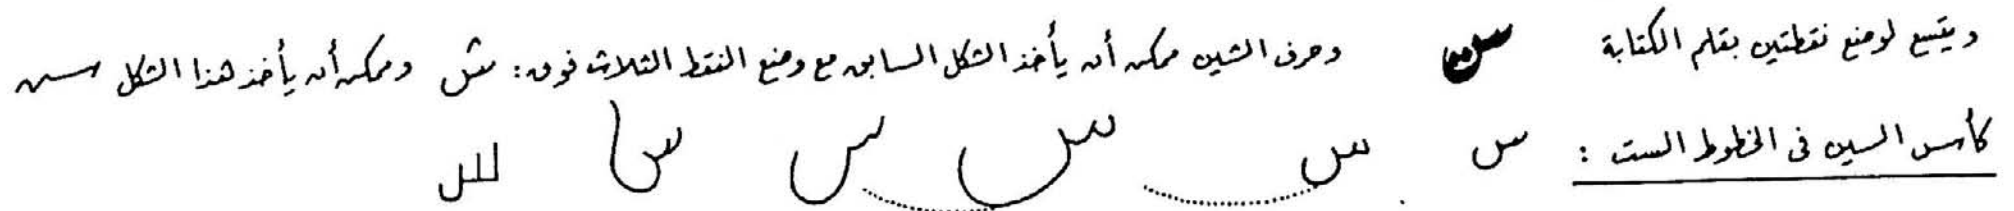 ويتسع لوضع نقطتين بقلم الكتابة س وحرف الشين ممكن أن يأخذ الشكل السابق مع وضع النقط الثلاث فوق: ش وممكن أن يأخذ هذا الشكل س
كأس السين فى الخطوط الست : س س س س س س